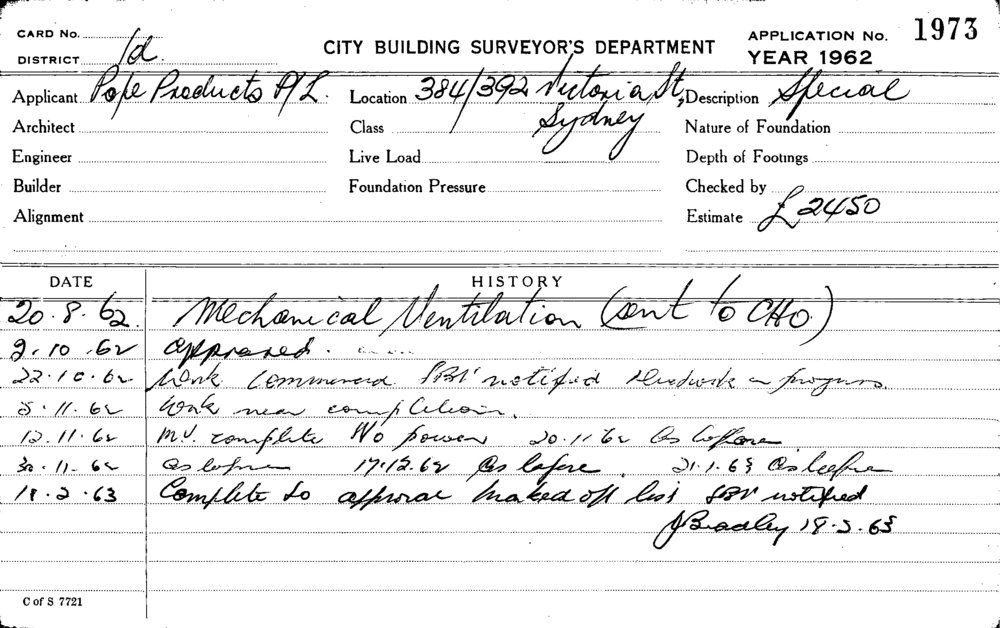 CARD No.
DISTRICT 1d.
CITY BUILDING SURVEYOR'S DEPARTMENT
APPLICATION No. 1973
YEAR 1962
Applicant Pope Products P/L. Location 384/392 Victoria St, Description Special
Sydney
Architect Class Nature of Foundation
Engineer Live Load Depth of Footings
Builder Foundation Pressure Checked by
Alignment Estimate £2450
DATE HISTORY
20.8.62. Mechanical Ventilation (sent to CHO.)
2.10.62 approved.
22.10.62 Work commenced notified in progress.
5.11.62 Work near completion.
12.11.62 M.V. complete No power 20.11.62 As before
30.11.62 As before 17.12.62 As before. 21.1.63 As before
18.2.63 Complete to approval marked off list notified
J Bradley 18.2.63
C of S 7721